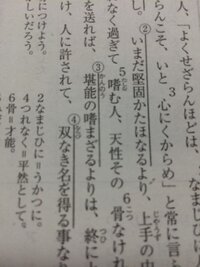 人、「よくせざらんほどは、なまじひに
らんこそ、いと3心にくからめ」と常に言
②いまだ堅固かたほなるより、上手の中
なく過ぎて5嗜む人、天性その6骨なけれ
を送れば、③堪能の嗜まざるよりは、終に
け、人に許されて、④双なき名を得る事な
につけよう。
しいだろう。
2なまじひに＝うかつに。
4つれなく＝平然として。
6骨＝才能。